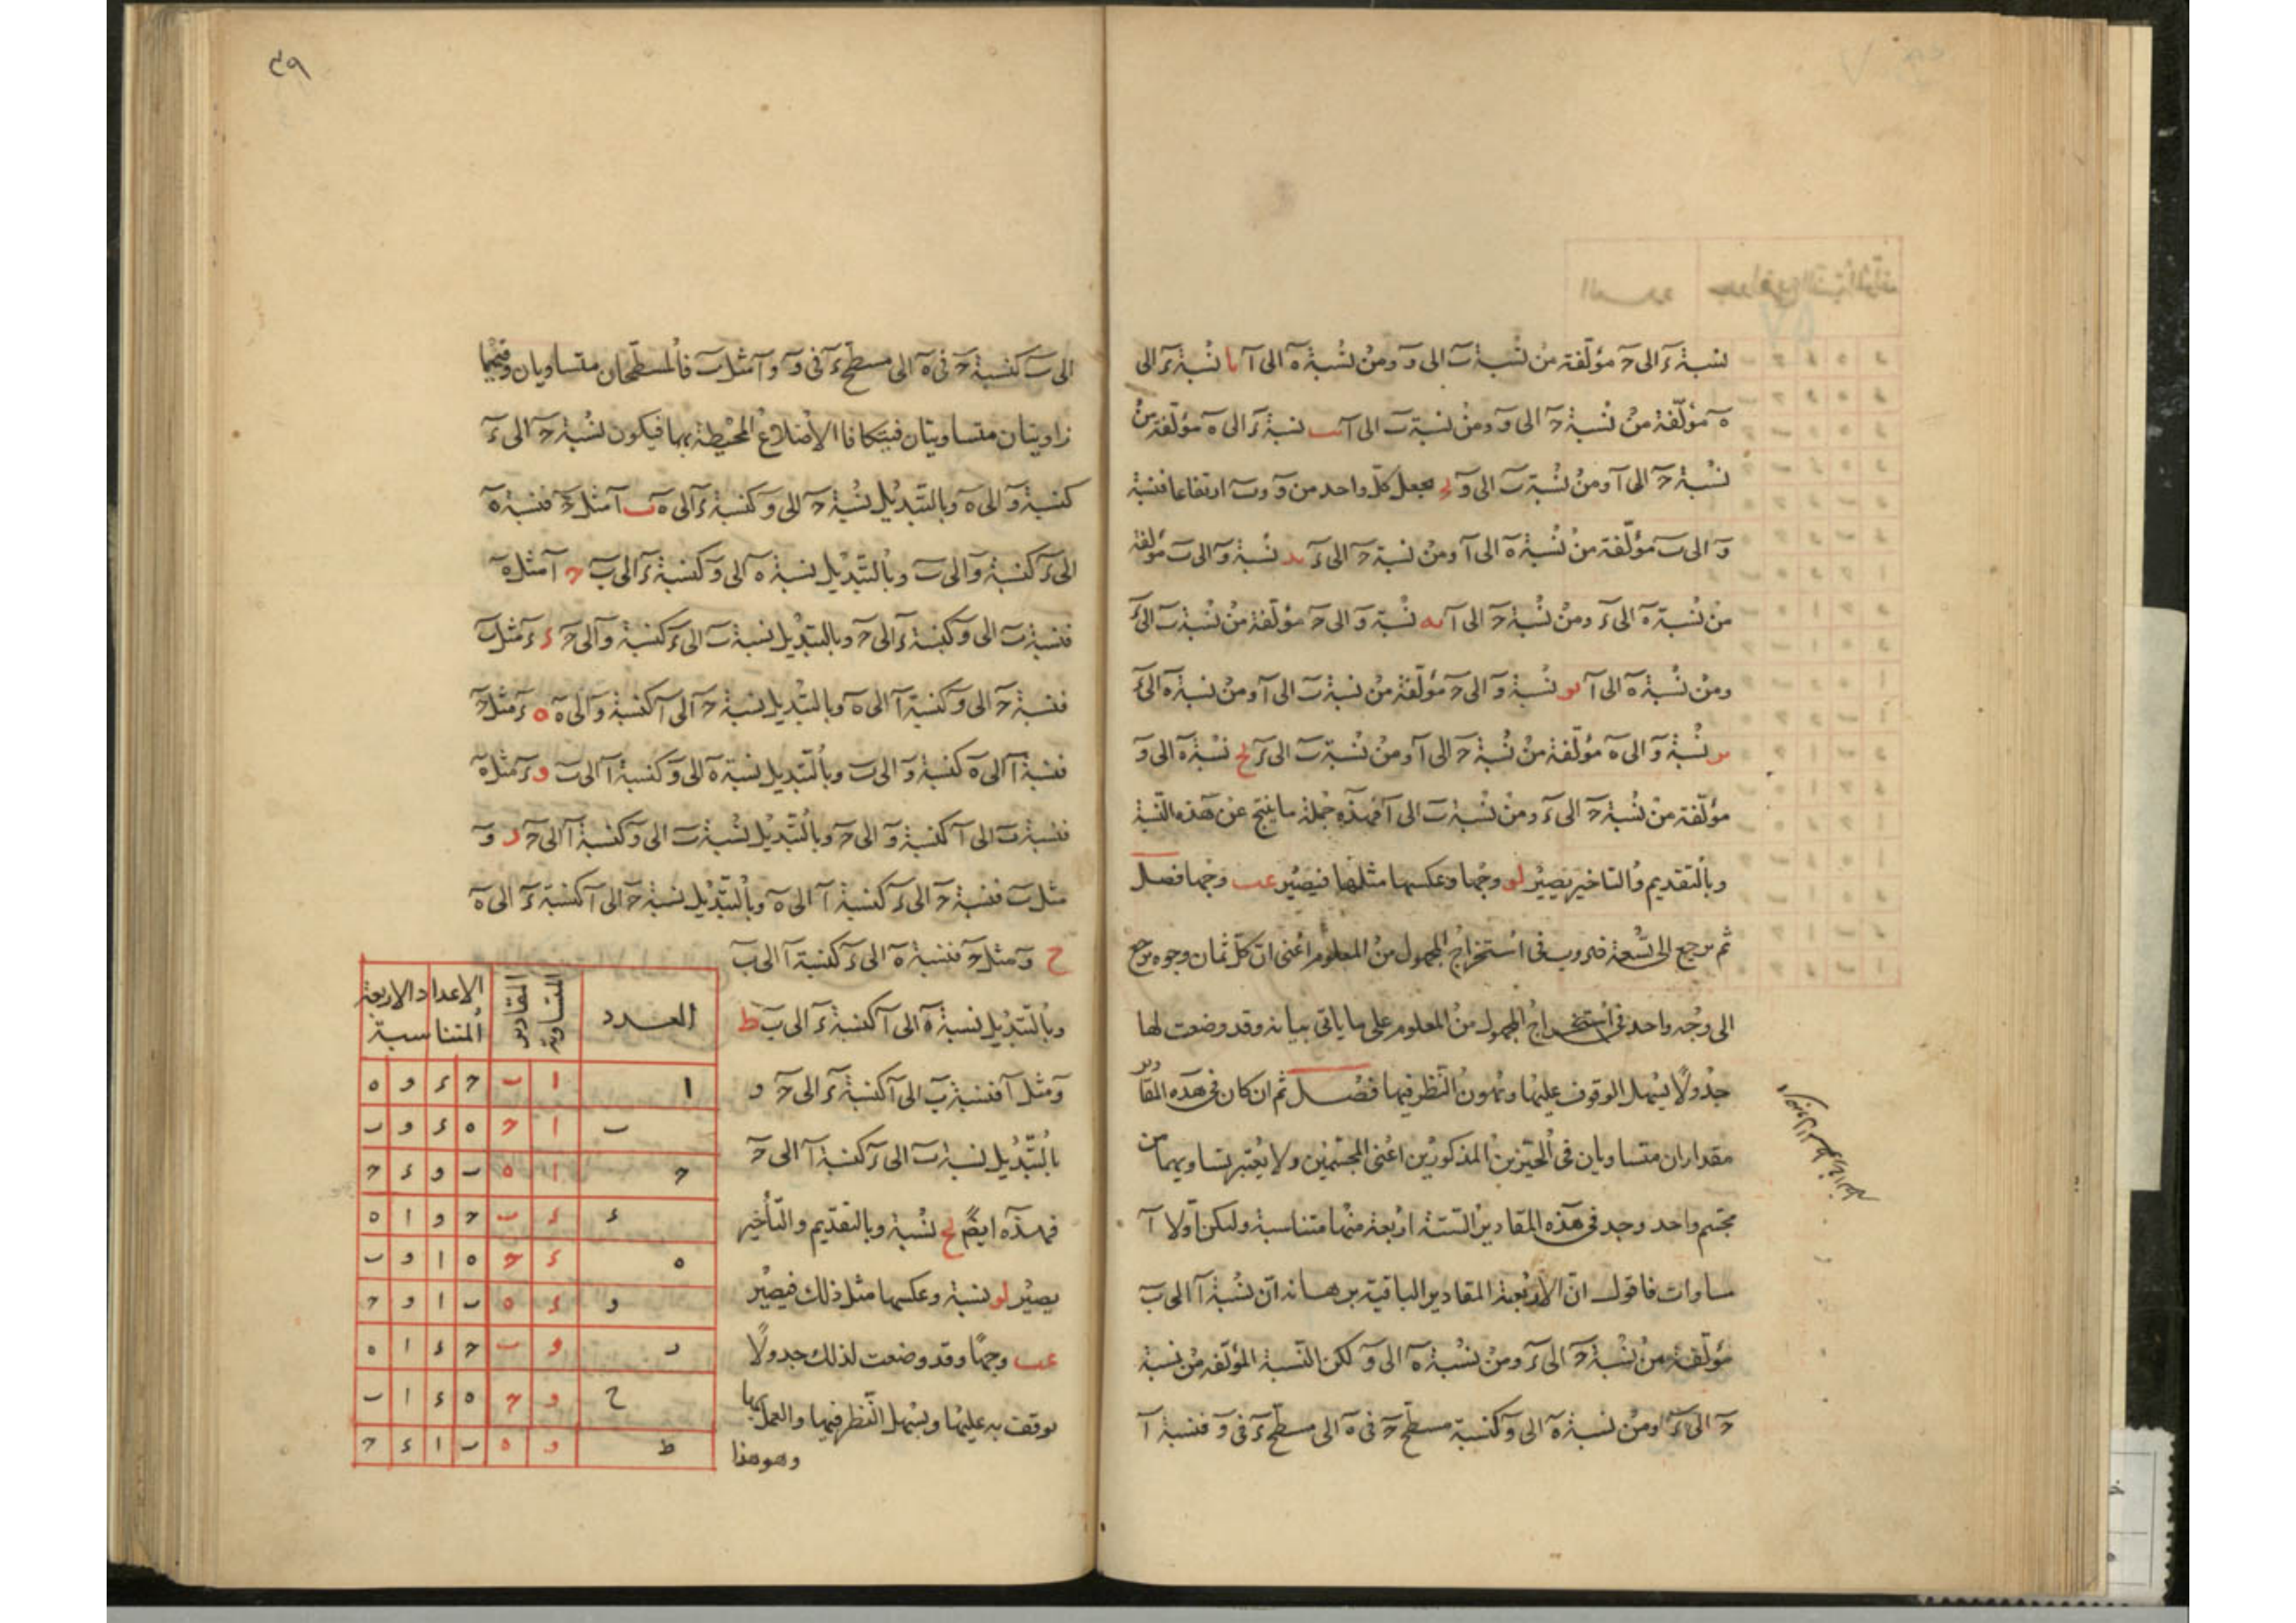 نسبة ءَ الى حَ مؤلفة من نسبة بَ الى وَ ومن نسبة هَ الى آ يا نسبة ءَ الى
هَ مؤلفة من نسبة حَ الى وَ ومن نسبة بَ الى آ يب نسبة ءَ الى هَ مؤلفة من
نسبة حَ الى آ ومن نسبة بَ الى وَ يح بجعل كل واحد من وَ وبَ ارتفاعا فنسبة
وَ الى بَ مؤلفة من نسبة هَ الى آ ومن نسبة حَ الى ءَ يد نسبة وَ الى بَ مؤلفة
من نسبة هَ الى ءَ ومن نسبة حَ الى آ يه نسبة وَ الى حَ مؤلفة من نسبة بَ الى ءَ
ومن نسبة هَ الى آ يو نسبة وَ الى حَ مؤلفة من نسبة بَ الى آ ومن نسبة هَ الى ءَ
ير نسبة وَ الى هَ مؤلفة من نسبة حَ الى آ ومن نسبة بَ الى ءَ يح نسبة هَ الى وَ
مؤلفة من نسبة حَ الى ءَ ومن نسبة بَ الى آ فهذه جملة ما ينتج عن هذه النسبة
وبالتقديم والتاخير يصير لو وجها وعكسها مثلها فيصير عب وجها فصل
ثم يرجع الى تسعة ضروب فى استخراج المجهول من المعلوم اعنى ان كل ثمان وجوه يرجع
الى وجه واحد فى استخراج المجهول من المعلوم على ما ياتى بيانه وقد وضعت لها
جدولًا يسهل الوقوف عليها ويهون النظر فيها فصل ثم ان كان فى هذه المقادير
مقداران متساويان فى الحيزين المذكورين اعنى المجسمين ولا يعتبر تساويهما من
مجسم واحد وجد فى هذه المقادير الستة اربعة منها متناسبة وليكن اولا آ
مساو ب فاقول ان الاربعة المقادير الباقية برهانه ان نسبة آ الى بَ
مؤلفة من نسبة حَ الى ءَ ومن نسبة هَ الى وَ لكن النسبة المؤلفة من نسبة
حَ الى ءَ ومن نسبة هَ الى وَ كنسبة مسطح حَ فى هَ الى مسطح ءَ فى وَ فنسبة آ
٤٩
الى بَ كنسبة حَ فى هَ الى مسطح ءَ فى وَ وآ مثل بَ فالمسطحان متساويان وفيهما
زاويتان متساويتان فيتكافا الاضلاع المحيطة بها فيكون نسبة حَ الى ءَ
كنسبة وَ الى هَ وبالتبديل نسبة حَ الى وَ كنسبة ءَ الى هَ ب آ مثل حَ فنسبة هَ
الى ءَ كنسبة وَ الى بَ وبالتبديل نسبة هَ الى وَ كنسبة ءَ الى بَ ح آ مثل هَ
فنسبة بَ الى وَ كنسبة ءَ الى حَ وبالتبديل نسبة بَ الى ءَ كنسبة وَ الى حَ ء ءَ مثل بَ
فنسبة حَ الى وَ كنسبة آ الى هَ وبالتبديل نسبة حَ الى آ كنسبة وَ الى هَ ه ءَ مثل حَ
فنسبة آ الى هَ كنسبة وَ الى بَ وبالتبديل نسبة هَ الى وَ كنسبة آ الى بَ و ءَ مثل هَ
فنسبة بَ الى آ كنسبة وَ الى حَ وبالتبديل نسبة بَ الى وَ كنسبة آ الى حَ ر وَ
مثل بَ فنسبة حَ الى ءَ كنسبة آ الى هَ وبالتبديل نسبة حَ الى آ كنسبة ءَ الى هَ
ح وَ مثل حَ فنسبة هَ الى ءَ كنسبة آ الى بَ
وبالتبديل نسبة هَ الى آ كنسبة ءَ الى بَ ط
وَ مثل هَ فنسبة بَ الى آ كنسبة ءَ الى حَ و
بالتبديل نسبة بَ الى ءَ كنسبة آ الى حَ
فهذه ايضًا يح نسبة وبالتقديم والتأخير
يصير لو نسبة وعكسها مثل ذلك فيصير
عب وجهًا وقد وضعت لذلك جدولًا
يوقف به عليها ويسهل النظر فيها والعمل بها
وهو هذا
العدد المقادير المتساوية الاعداد الاربعة المتناسبة
ا ا ب ح ء و ه
ب ا ح ه ء و ب
ح ا ه ب و ء ح
ء ء ب ح و ا ه
ه ء ح ه ا و ب
و ء ه ب ا و ح
ر و ب ح ء ا ه
ح و ح ه ء ا ب
ط و ه ب ا ء ح